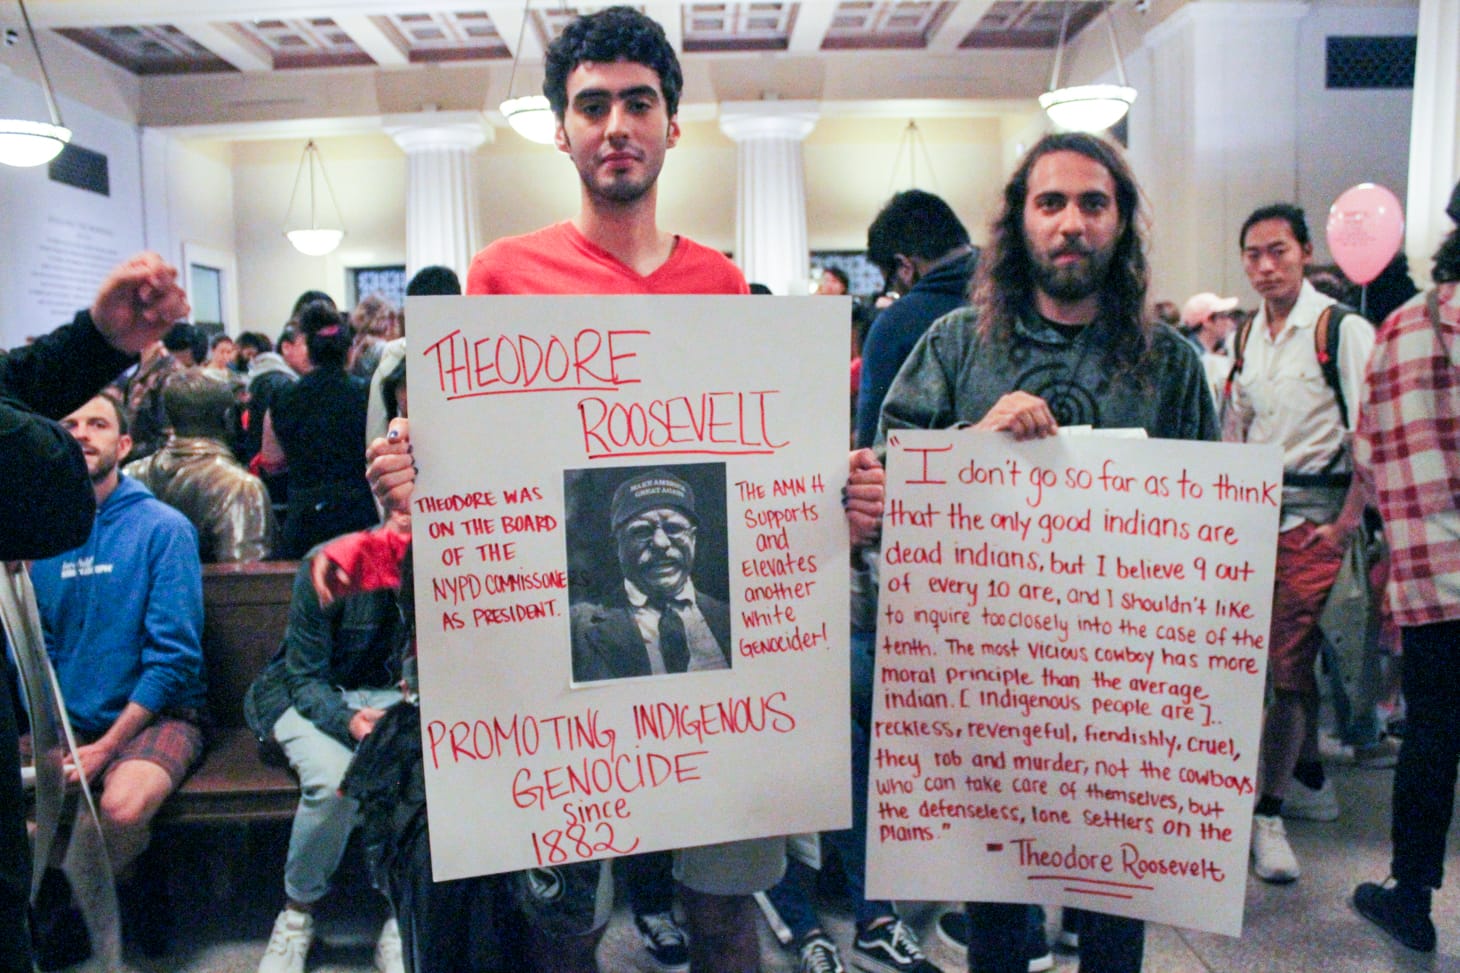 THEODORE
ROOSEVELT
THEODORE WAS
ON THE BOARD
OF THE
NYPD COMMISSONERS
AS PRESIDENT.
MAKE AMERICA
GREAT AGAIN
THE AMNH
Supports
and
Elevates
another
White
Genocider!
PROMOTING INDIGENOUS
GENOCIDE
since
1882
"I don't go so far as to think
that the only good indians are
dead indians, but I believe 9 out
of every 10 are, and I shouldn't like
to inquire too closely into the case of the
tenth. The most vicious cowboy has more
moral principle than the average
indian. [indigenous people are]..
reckless, revengeful, fiendishly, cruel,
they rob and murder, not the cowboys
who can take care of themselves, but
the defenseless, lone settlers on the
plains."
- Theodore Roosevelt